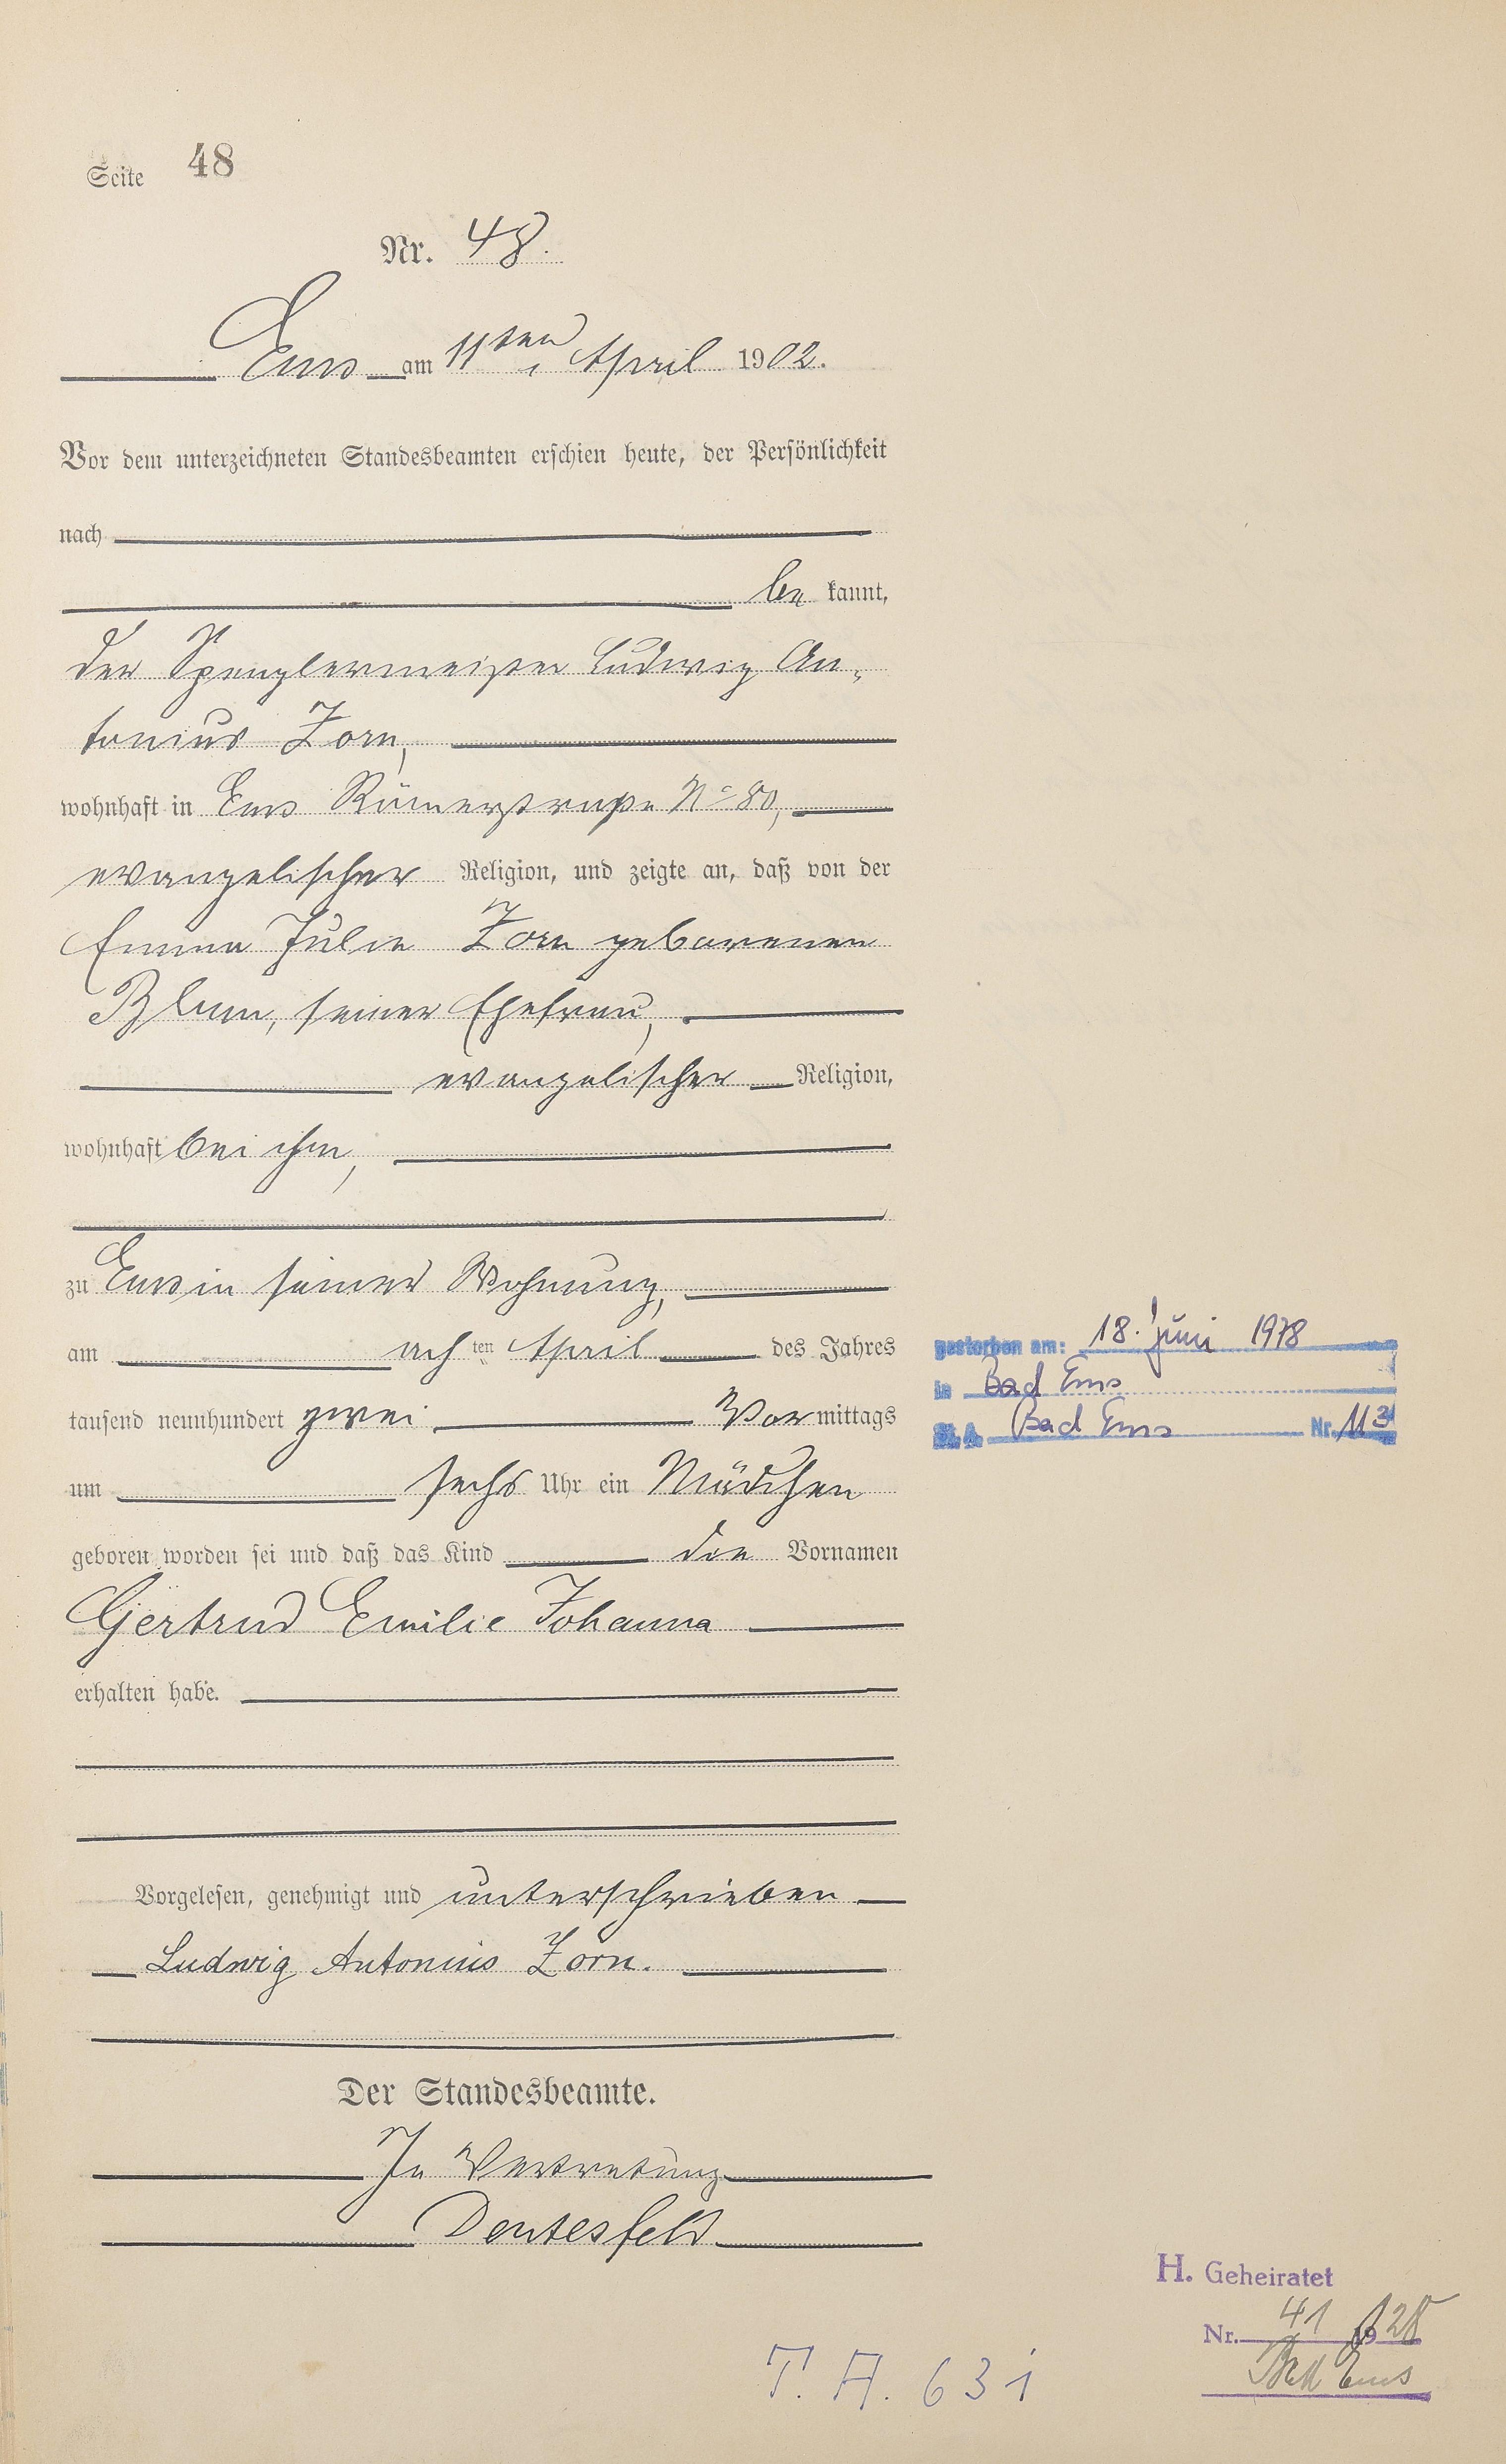 Seite 48
Nr. 48.
Ems am 11ten April 1902.
Vor dem unterzeichneten Standesbeamten erschien heute, der Persönlichkeit
nach
be kannt,
der Spenglermeister Ludwig An-
tonius Zorn,
wohnhaft in Ems Römerstraße No 80,
evangelischer Religion, und zeigte an, daß von der
Emma Julie Zorn geborenen
Blum, seiner Ehefrau,
evangelischer Religion,
wohnhaft bei ihm,
zu Ems in seiner Wohnung,
am achten April des Jahres
tausend neunhundert zwei Vormittags
um sechs Uhr ein Mädchen
geboren worden sei und daß das Kind die Vornamen
Gertrud Emilie Johanna
erhalten habe.
Vorgelesen, genehmigt und unterschrieben
Ludwig Antonius Zorn.
Der Standesbeamte.
In Vertretung
gestorben am: 18. Juni 1978
in Bad Ems
St. A. Bad Ems Nr. 113
H. Geheiratet
Nr. 41 1928
Bad Ems
T. A. 631